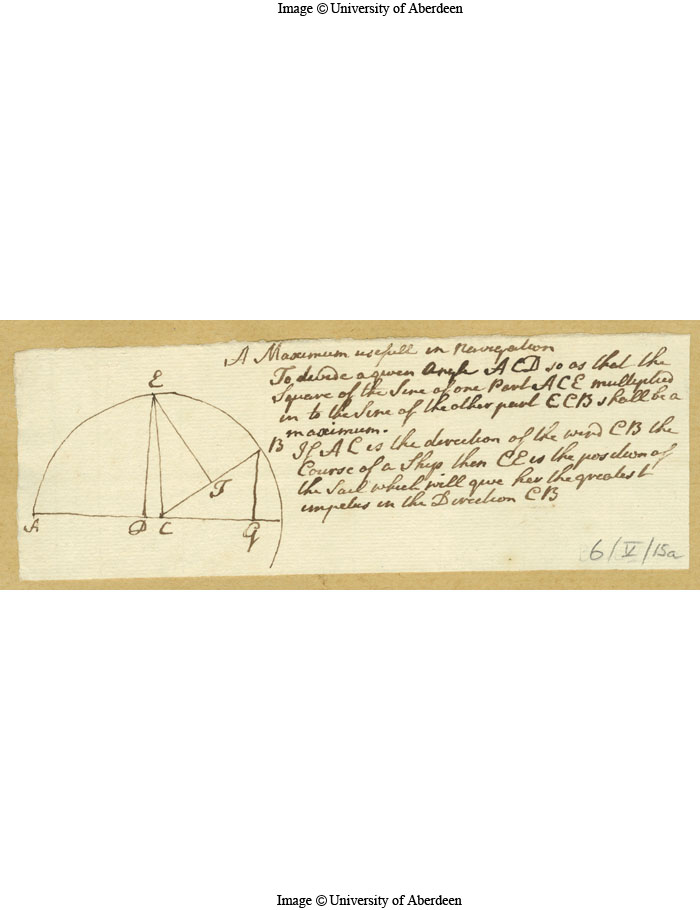 Image © University of Aberdeen
A Maximum usefull in Navigation
To devide a given Angle ACD so as that the
Square of the Sine of one Part ACE multiplied
in to the Sine of the other part ECB shall be a
maximum.
If AC is the direction of the wind CB the
Course of a Ship then CE is the position of
the Sail which will give her the greatest
impetus in the Direction CB
E
B
F
A
D C
G
6/V/15a
Image © University of Aberdeen